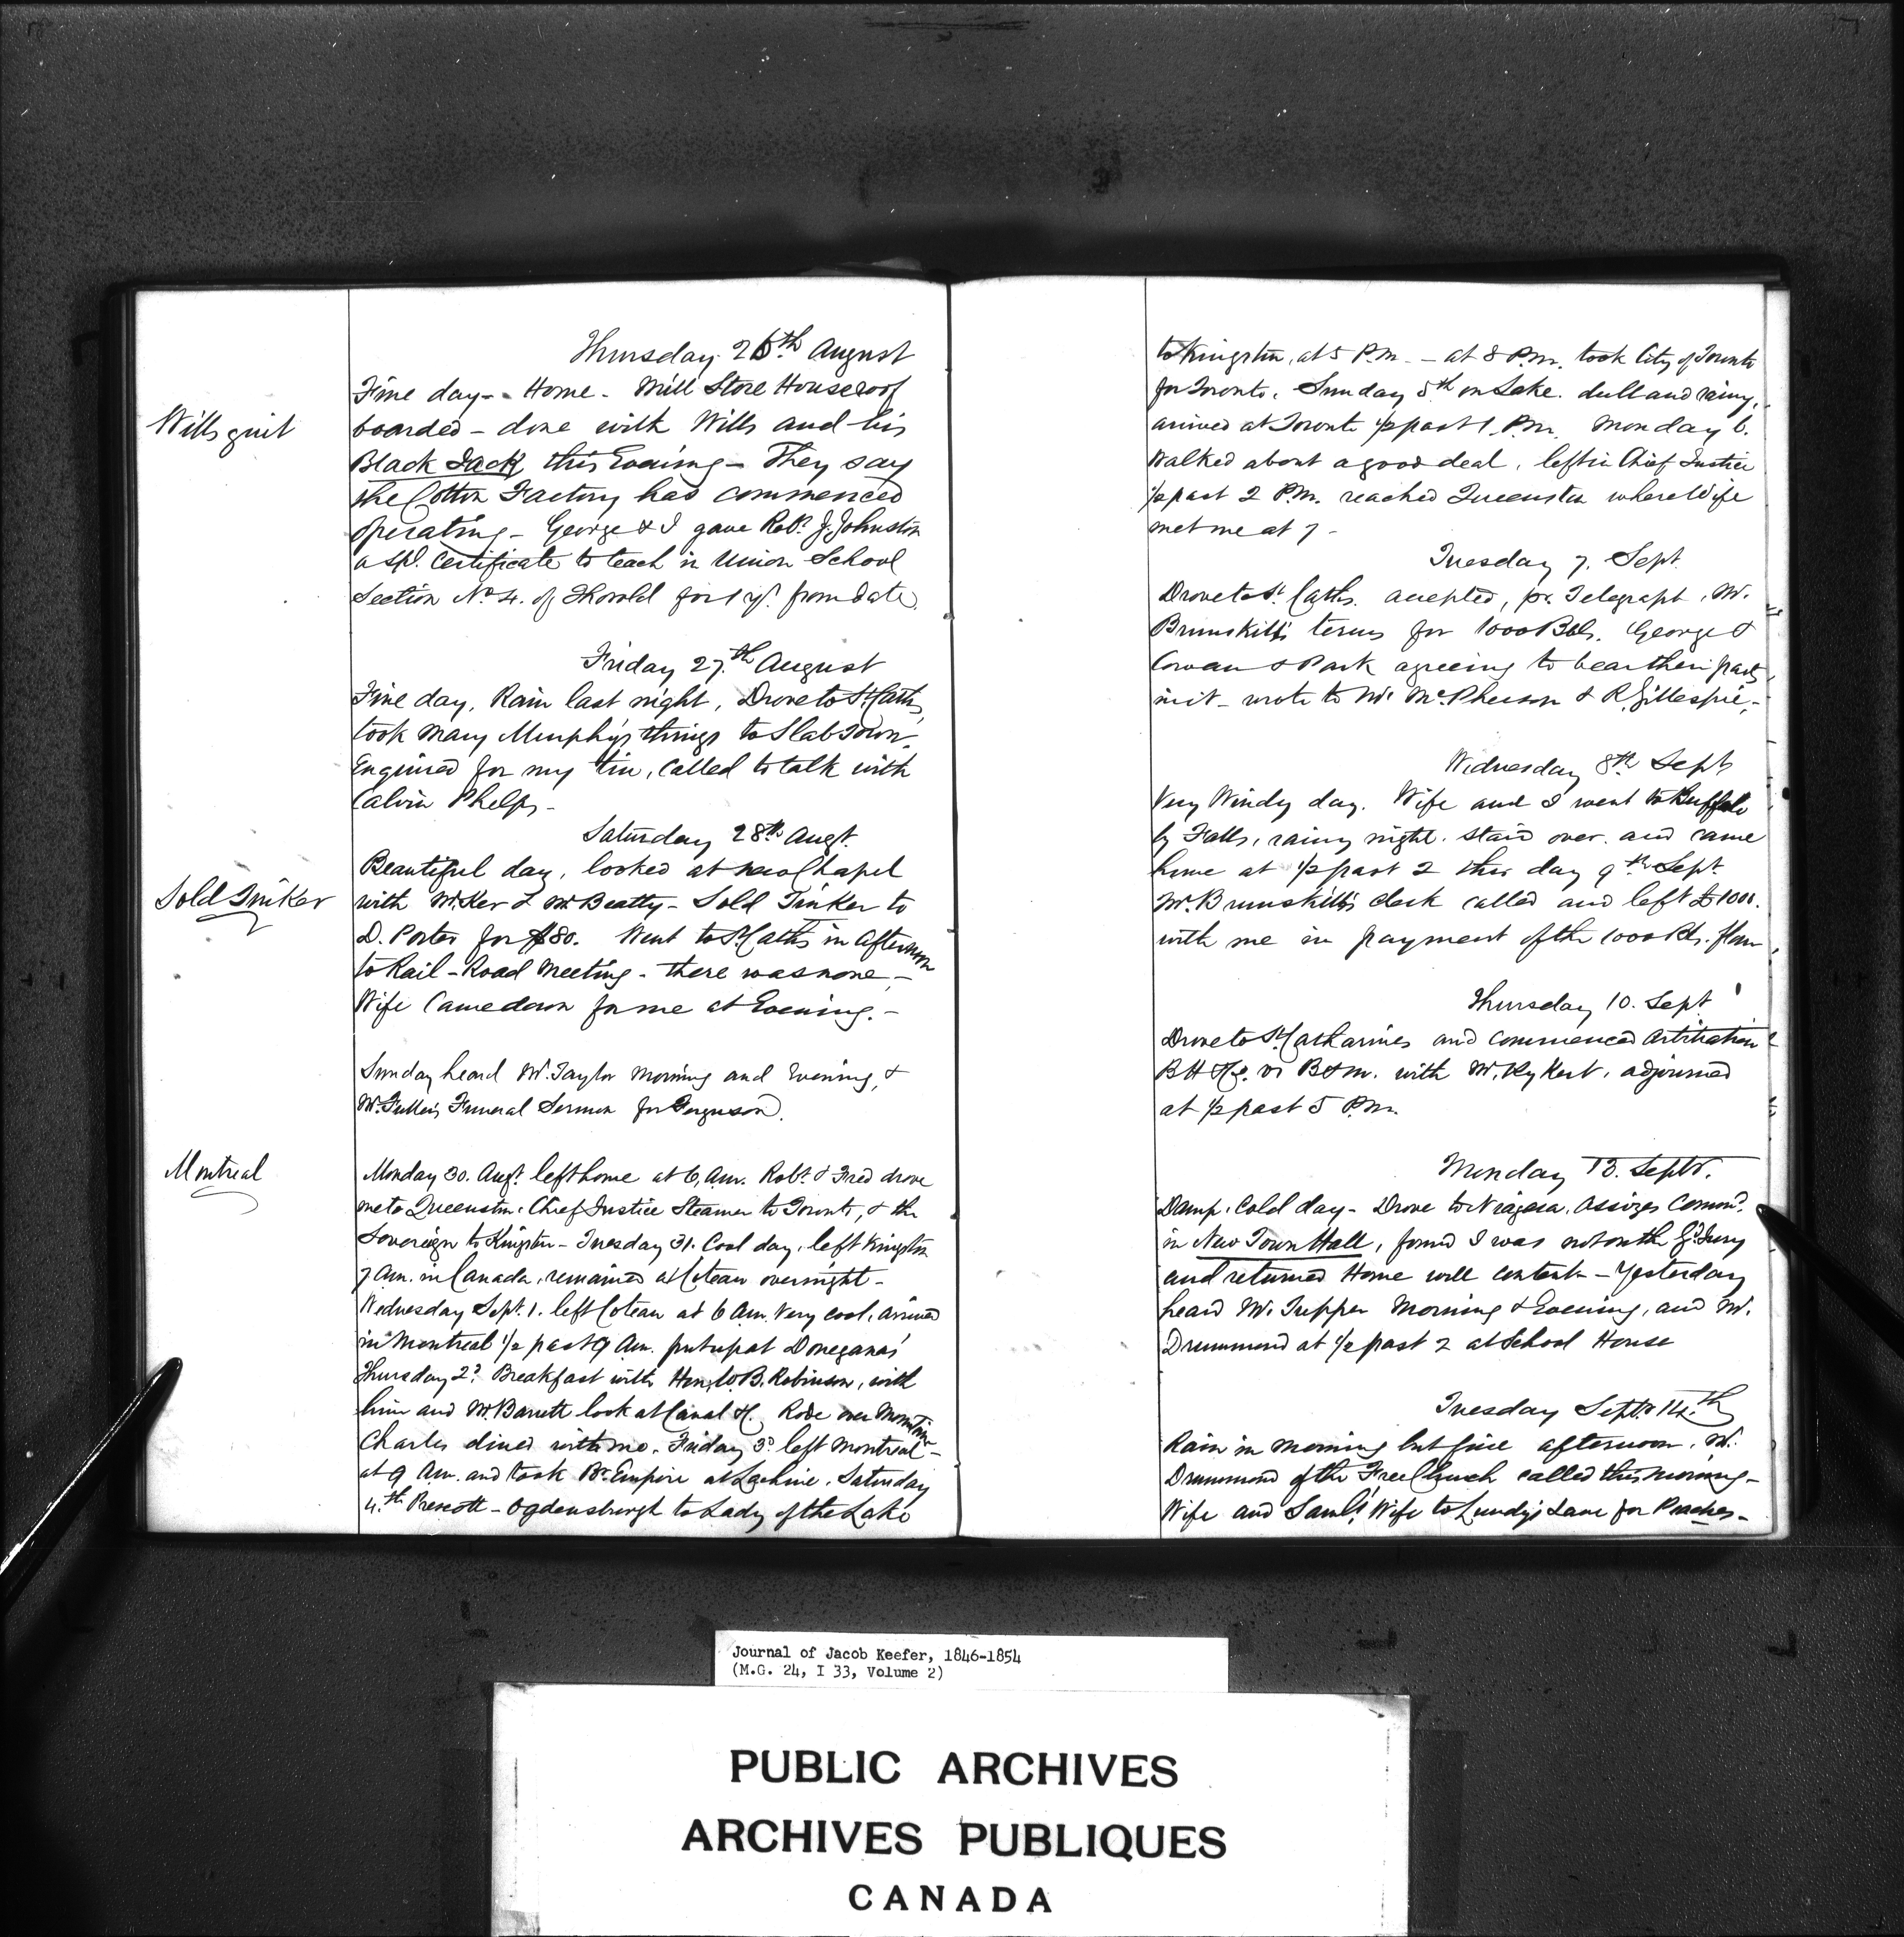 Thursday 26th August
Fine day - Home - Mill Store House roof
Wills quit
boarded - done with Wills and his
Black Jack this Evening - They say
the Cotton Factory has commenced
operating - George & I gave Robt. J. Johnston
a Spl. Certificate to teach in Union School
Section No. 4. of Thorold for 1 yr. from date.
Friday 27th August
Fine day, Rain last night, Drove to St. Caths,
took Mary Murphy's things to Slab Town,
Enquired for my tin, called to talk with
Calvin Phelps -
Saturday 28th Augt.
Beautiful day, looked at new Chapel
Sold Tinker
with Mr. Ker & Mr. Beatty - Sold Tinker to
D. Porter for $80. Went to St. Caths in afternoon
to Rail-Road Meeting - there was none -
Wife Came down for me at Evening. -
Sunday heard Mr. Taylor Morning and Evening, &
Mr. Fuller's Funeral Sermon for Ferguson.
Montreal
Monday 30. Augt. left home at 6, a.m. Robt. & Fred drove
me to Queenston, Chief Justice Steamer to Toronto, & the
Sovereign to Kingston - Tuesday 31. Cool day, left Kingston
7 Am. in Canada, remained at Coteau overnight -
Wednesday Sept. 1. left Coteau at 6 Am. Very cool, arrived
in Montreal 1/2 past 9 Am. put up at Doneganas'
Thursday 2d. Breakfast with Hon. W. B. Robinson, with
him and Mr. Barrett look at Canal &c. Rode over Mountain
Charles dined with me. Friday 3d. left Montreal -
at 9 Am. and took Br. Empire at Lachine. Saturday
4.th Prescott - Ogdensburgh to Lady of the Lake
to Kingston, at 5 P.M. - at 8 P.m. took City of Toronto
for Toronto. Sunday 5th on Lake. dull and rainy,
arrived at Toronto 1/2 past 1 P.m. Monday 6.
Walked about a good deal, left in Chief Justice
1/2 past 2 P.M. reached Queenston where Wife
met me at 7 -
Tuesday 7. Sept.
Drove to St. Caths. accepted, pr. Telegraph, Mr.
Brunskill's terms for 1000 Bbls. George &
Cowan & Park agreeing to bear their parts
in it - wrote to Mr. McPherson & R. Gillespie, -
Wednesday 8th Sept
Very Windy day. Wife and I went to Buffalo
by Falls, rainy night. staid over. and came
home at 1/2 past 2 this day 9th Sept.
Mr. Brunskill's clerk called and left £1000.
with me in payment of the 1000 Bls. flour,
Thursday 10. Sept
Drove to St. Catharines and commenced Arbitration
B H & Co. vs B & M. with Mr. Rykert, adjourned
at 1/2 past 5 P.m.
Monday 13. Septr.
Damp, Cold day - Drove to Niagara, Assizes Commd.
in New Town Hall, found I was not on the Gd. Jury
and returned Home well content - Yesterday
heard Mr. Tupper Morning & Evening, and Mr.
Drummond at 1/2 past 2 at School House
Tuesday Septr. 14.th
Rain in morning but fine afternoon. Mr.
Drummond of the Free Church called this morning -
Wife and Saml's Wife to Lundy's Lane for Peaches -
Journal of Jacob Keefer, 1846-1854
(M.G. 24, I 33, Volume 2)
PUBLIC ARCHIVES
ARCHIVES PUBLIQUES
CANADA